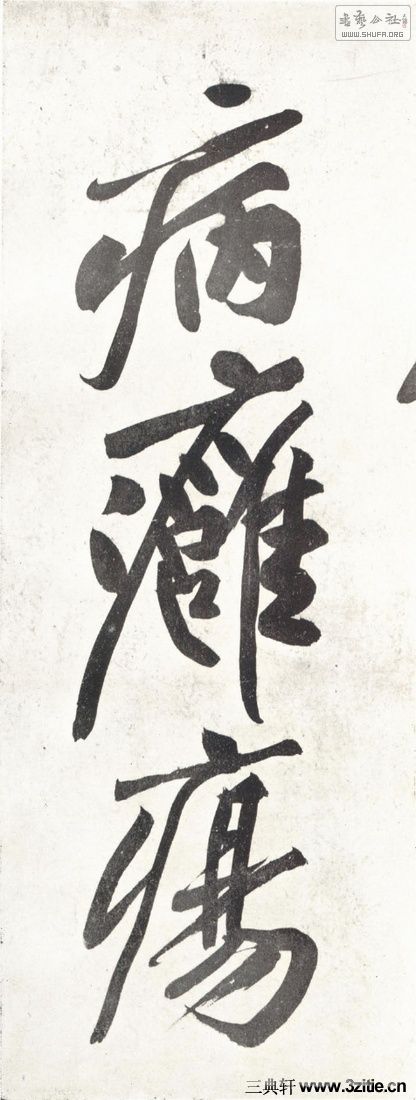 書藝公社
WWW.SHUFA.ORG
病
癰
瘍
三典轩 www.3zitie.cn